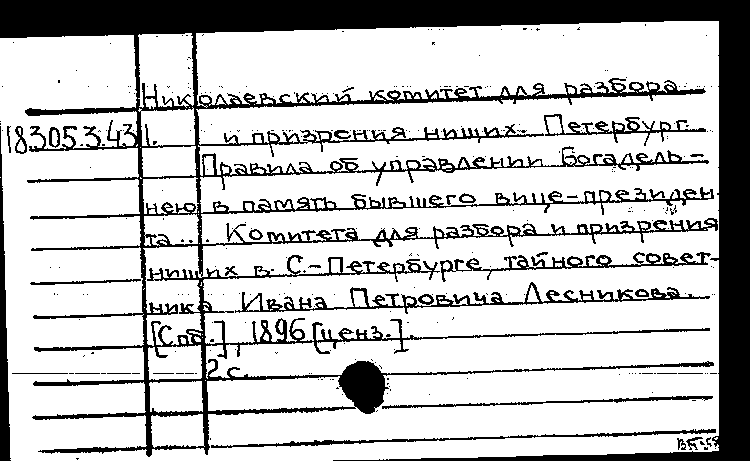 Николаевский комитет для разбора
18.305.3.431. и призрения нищих. Петербург.
Правила об управлении Богадель-
нею в память бывшего вице-президен-
та ... Комитета для разбора и призрения
нищих в С.-Петербурге, тайного совет-
ника Ивана Петровича Лесникова.
[Спб.], 1896 [ценз.].
2 с.